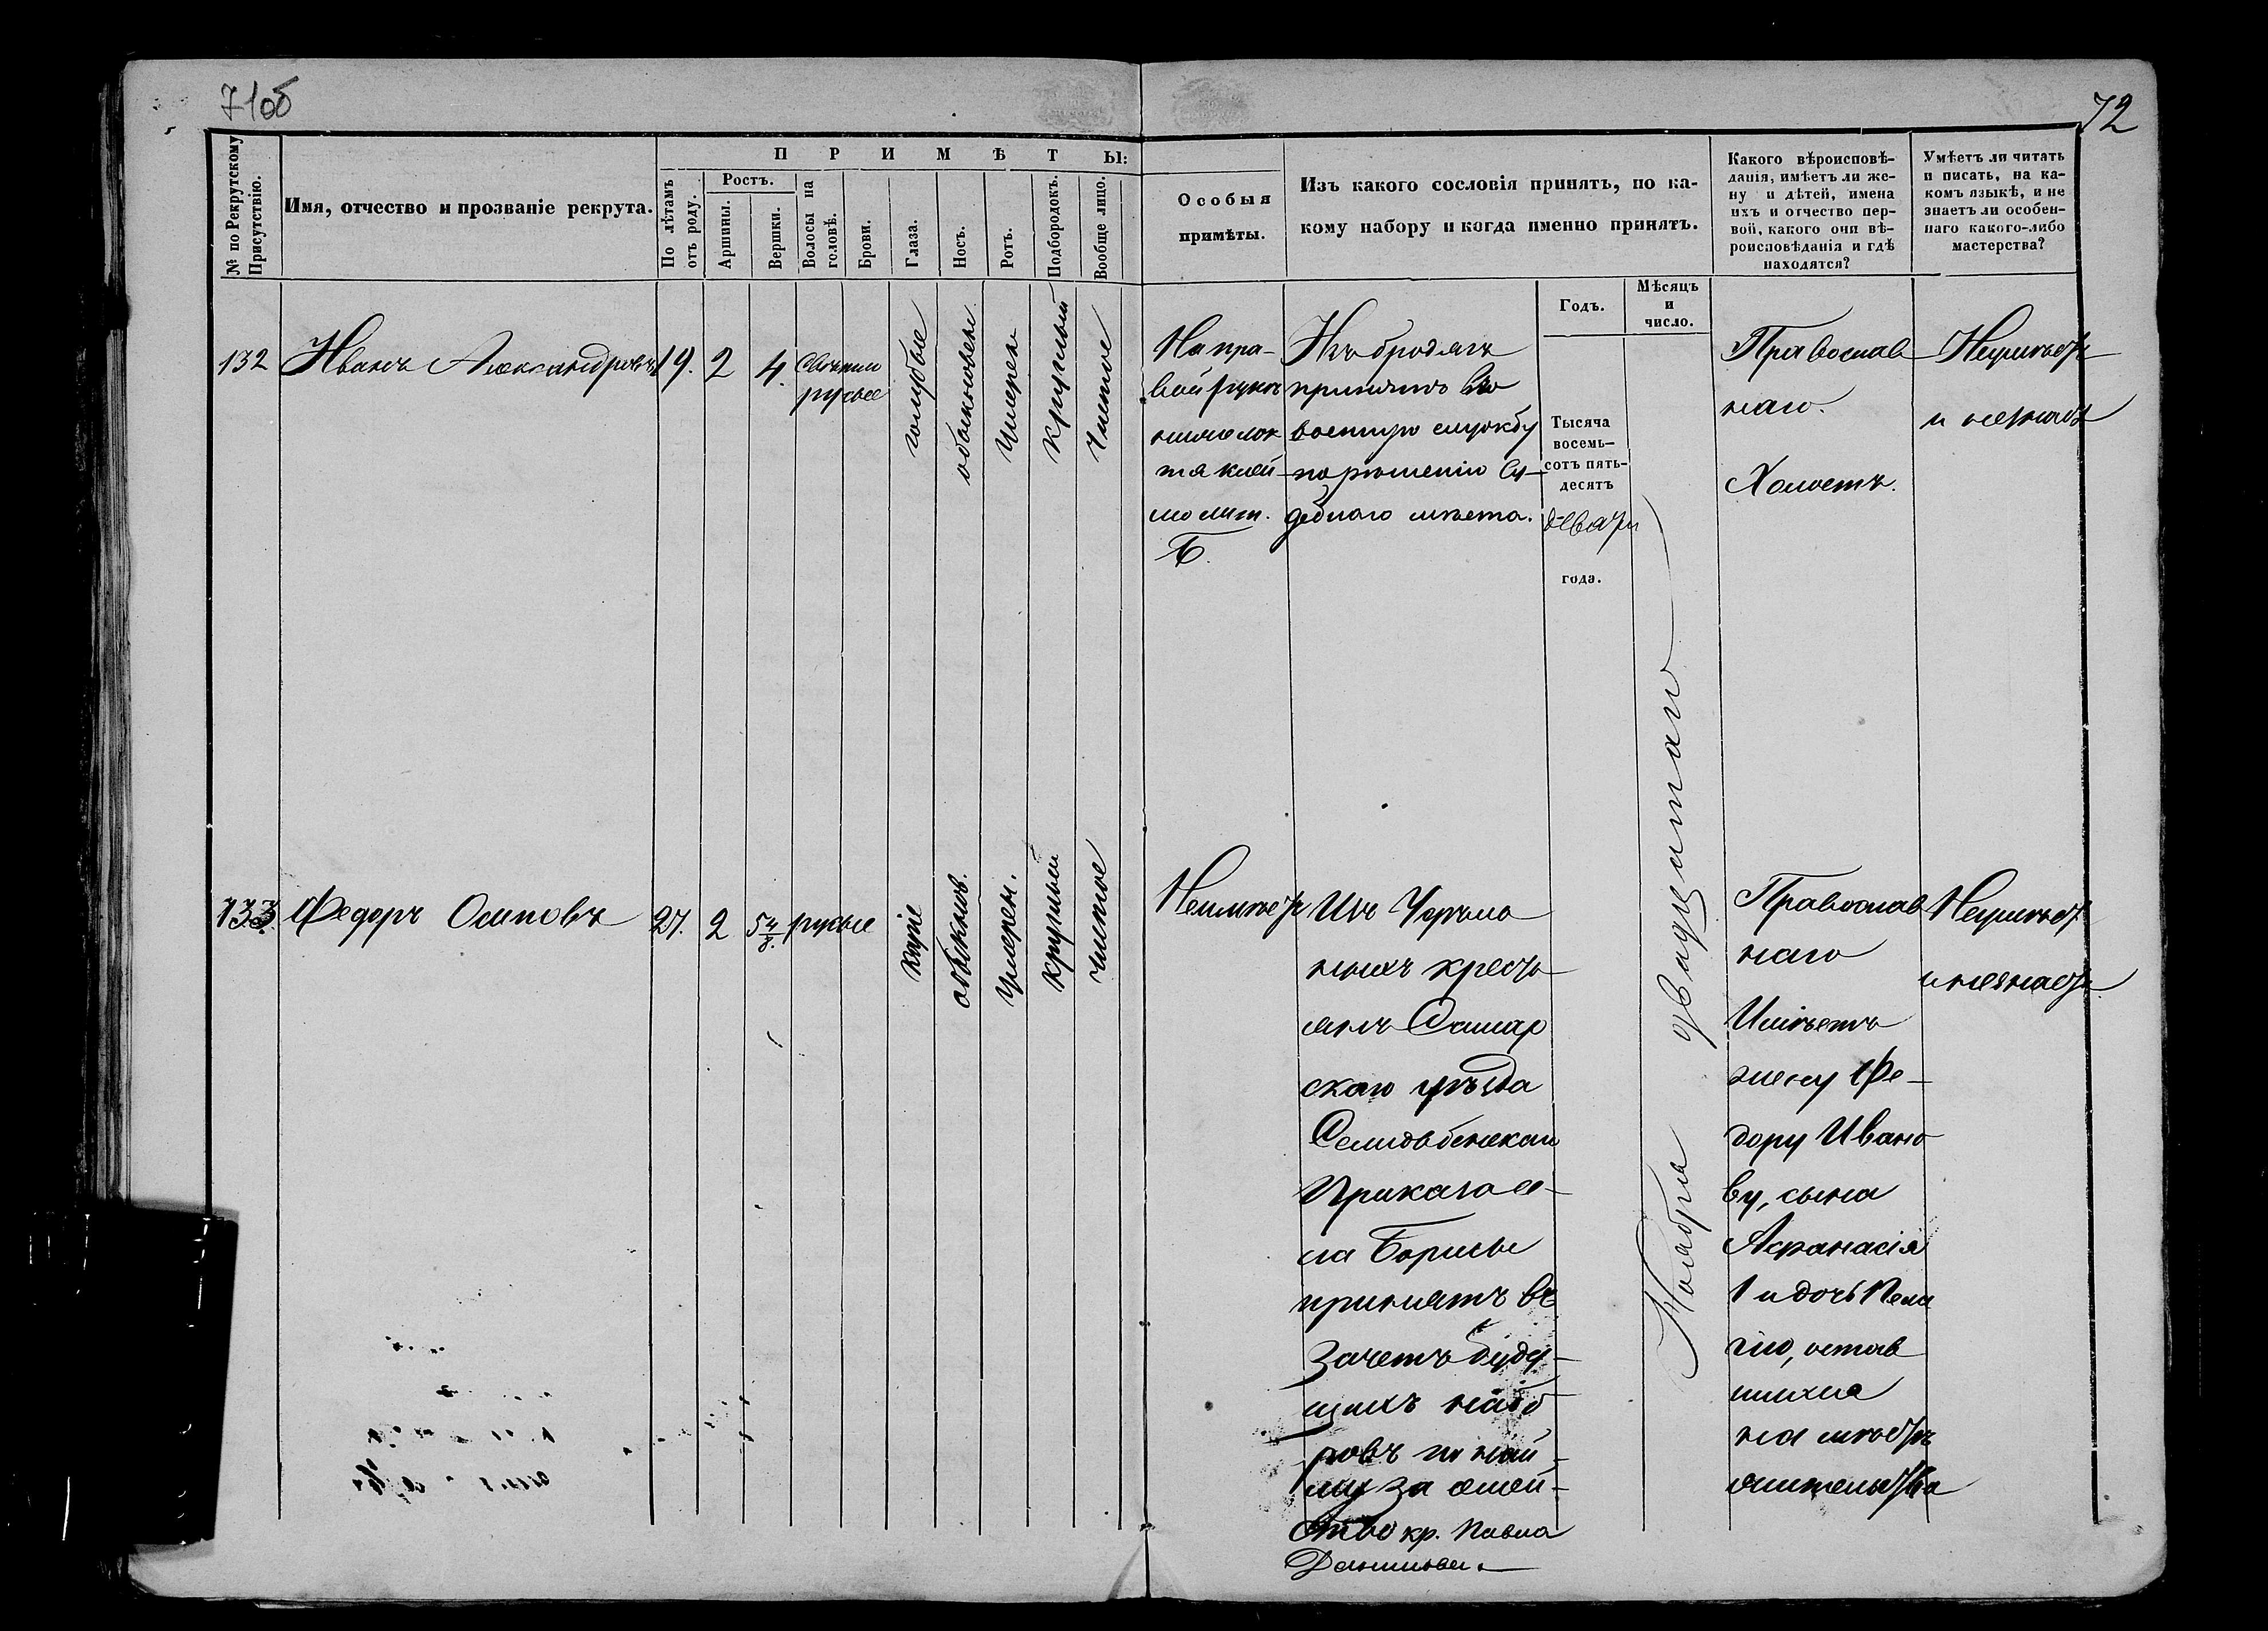 71об
72
№ по Рекрутскому Присутствію.
Имя, отчество и прозваніе рекрута.
ПРИМѢТЫ:
По лѣтамъ отъ роду.
Ростъ.
Аршины.
Вершки.
Волосы на головѣ.
Брови.
Глаза.
Носъ.
Ротъ.
Подбородокъ.
Вообще лицо.
Особыя
примѣты.
Изъ какого сословія принятъ, по ка-
кому набору и когда именно принятъ.
Годъ.
Мѣсяцъ
и
число.
Какого вѣроисповѣ-
данія, имѣетъ ли же-
ну и дѣтей, имена
ихъ и отчество пер-
вой, какого они вѣ-
роисповѣданія и гдѣ
находятся?
Умѣетъ ли читать
и писать, на ка-
комъ языкѣ, и не
знаетъ ли особен-
наго какого-либо
мастерства?
132
Иванъ Александровъ
19.
2
4.
Свѣтло
русые
голубые
обыкновен
Умерен
Круглый
Чистое
На пра-
вой рукѣ
клей-
Б.
Изъ бродягъ
принятъ въ
военную службу
по рѣшенію Су-
дебнаго мѣста.
Тысяча
восемь-
сотъ пять-
десятъ
года.
Ноября двадцатаго
Православ
наго.
Холостъ.
Неумѣетъ
и незнаетъ
133
Федоръ Осиповъ
27.
2
5 4/8.
русые
каріе
обыкнов.
Умерен.
круглый
чистое
Неимѣетъ
Изъ Удѣль
ныхъ кресть
янъ Самар
скаго уѣзда
Приказа се-
ла Борисы
принятъ въ
Зачетъ буду-
щихъ набо
ровъ по най-
му за семей-
ство кр. Павла
Данилова.
Православ
наго
Имѣетъ
жену Фе-
дору Ивано
ву, сына
Афанасія
1 и дочь Пела
гію, остав
шихся
на мѣстѣ
жительства
Неумѣет
и незнаетъ